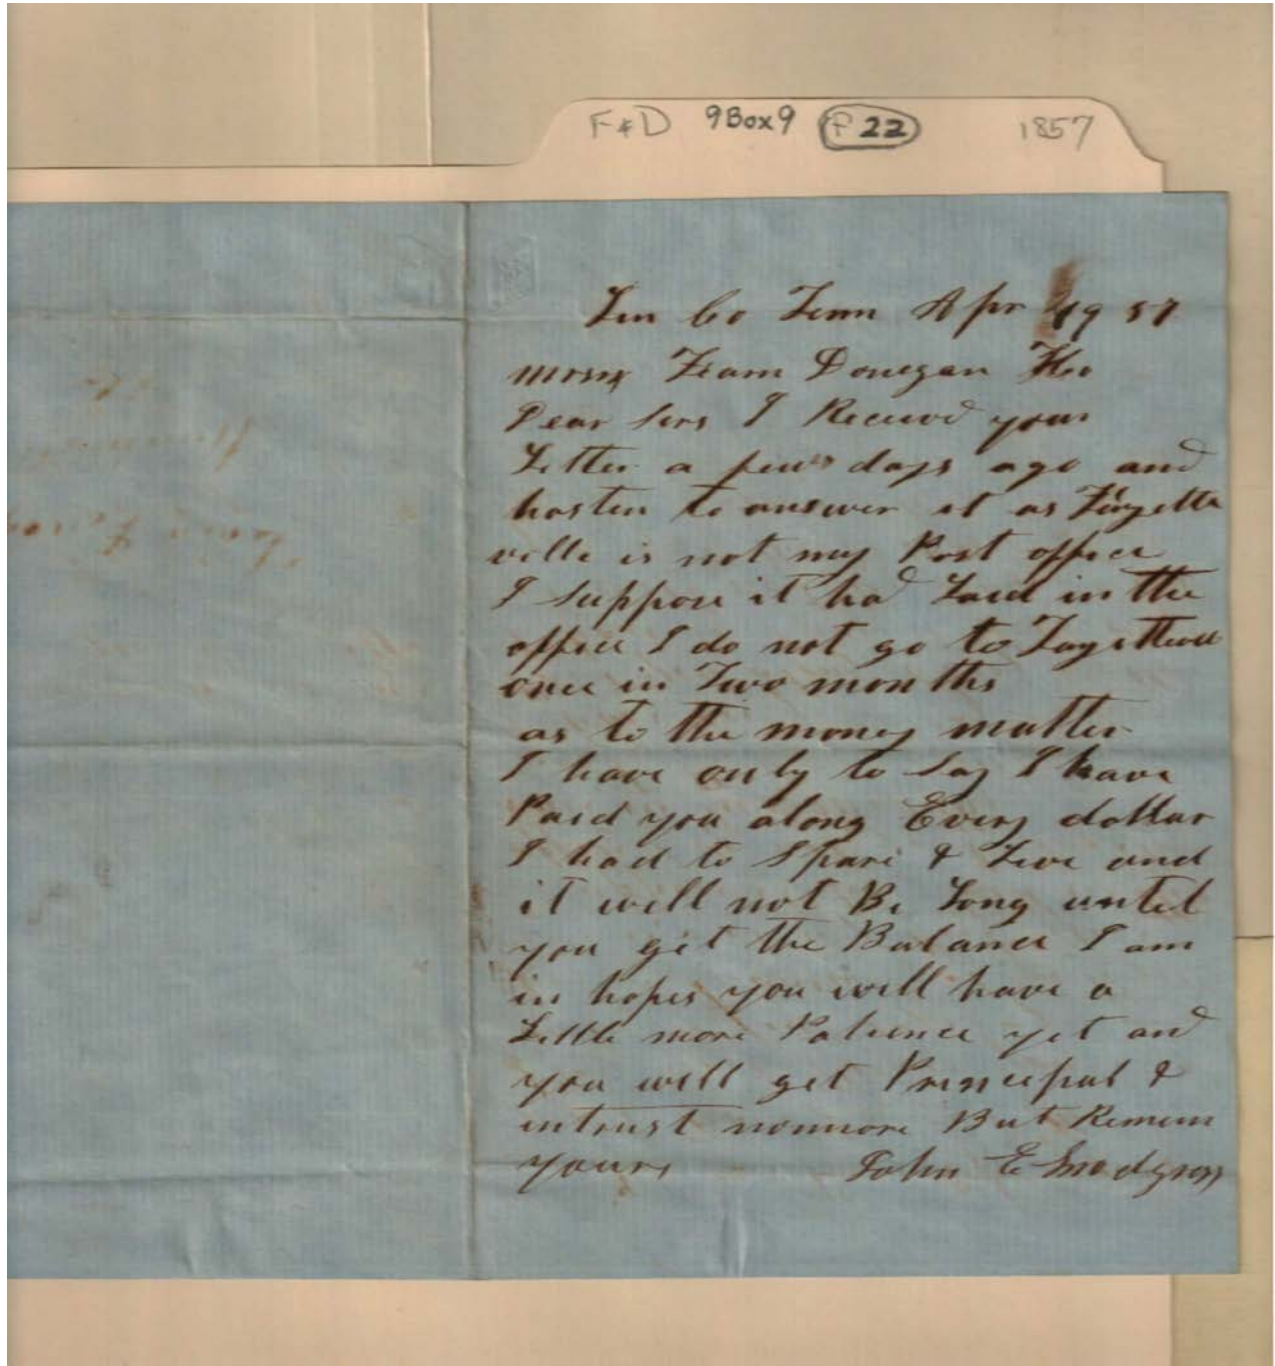 F & D 9Box9 F 22 1857
Lin Co Tenn Apr 19 57
Messrs Fearn Donegan & Co
Dear Sirs I Received your
Letter a few days ago and
hasten to answer it as Fayette
ville is not my Post office
I suppose it had Laid in the
office I do not go to Fayettevill
once in Two months
as to the money matter
I have only to say I have
Paid you along Every dollar
I had to Spare & Live and
it will not Be Long until
you get the Balance I am
in hopes you will have a
Little more Patience yet and
you will get Principal &
intrust nonmore But Remain
yours John E Snodgrass